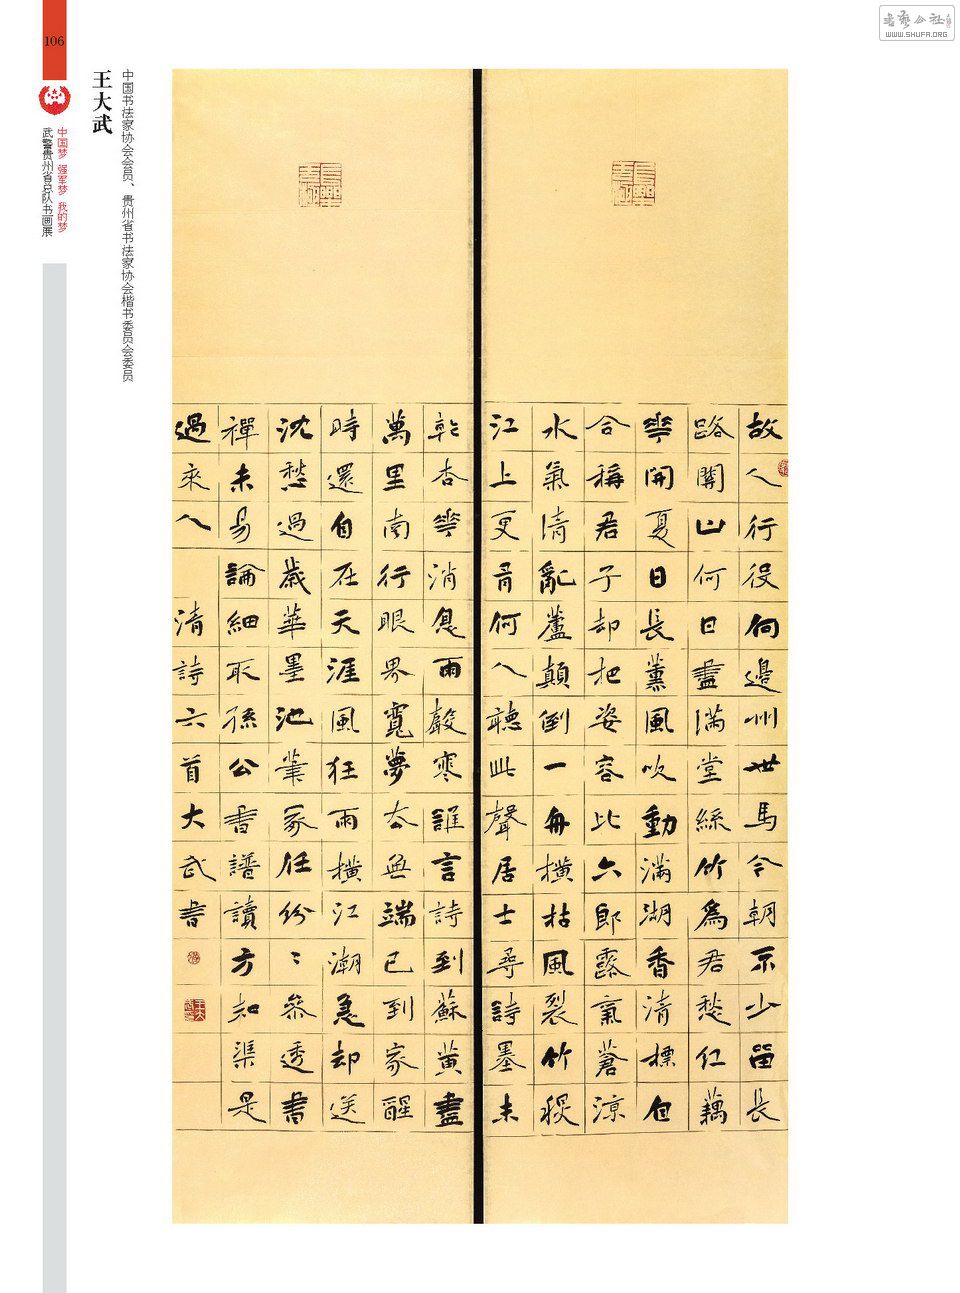 106
中国梦 强军梦 我的梦
武警贵州省总队书画展
王大武
中国书法家协会会员、贵州省书法家协会楷书委员会委员
WWW.SHUFA.ORG
故人行役向邊州世馬今朝不少留長
路關山何日盡滿堂絲竹為君愁紅藕
華開夏日長薰風吹動滿湖香清標自
合稱君子却把姿容比六郎露氣蒼涼
水氣清亂蘆顛倒一舟橫枯風裂竹猨
江上更有何人聽此聲居士尋詩墨未
乾杏華消息雨聲寒誰言詩到蘇黃盡
萬里南行眼界寬夢太無端已到家醒
時還自在天涯風狂雨橫江潮急却送
沈愁過歲華墨池筆冢任紛〻參透書
禪未易論細取孫公書譜讀方知渠是
過來人 清詩六首大武書